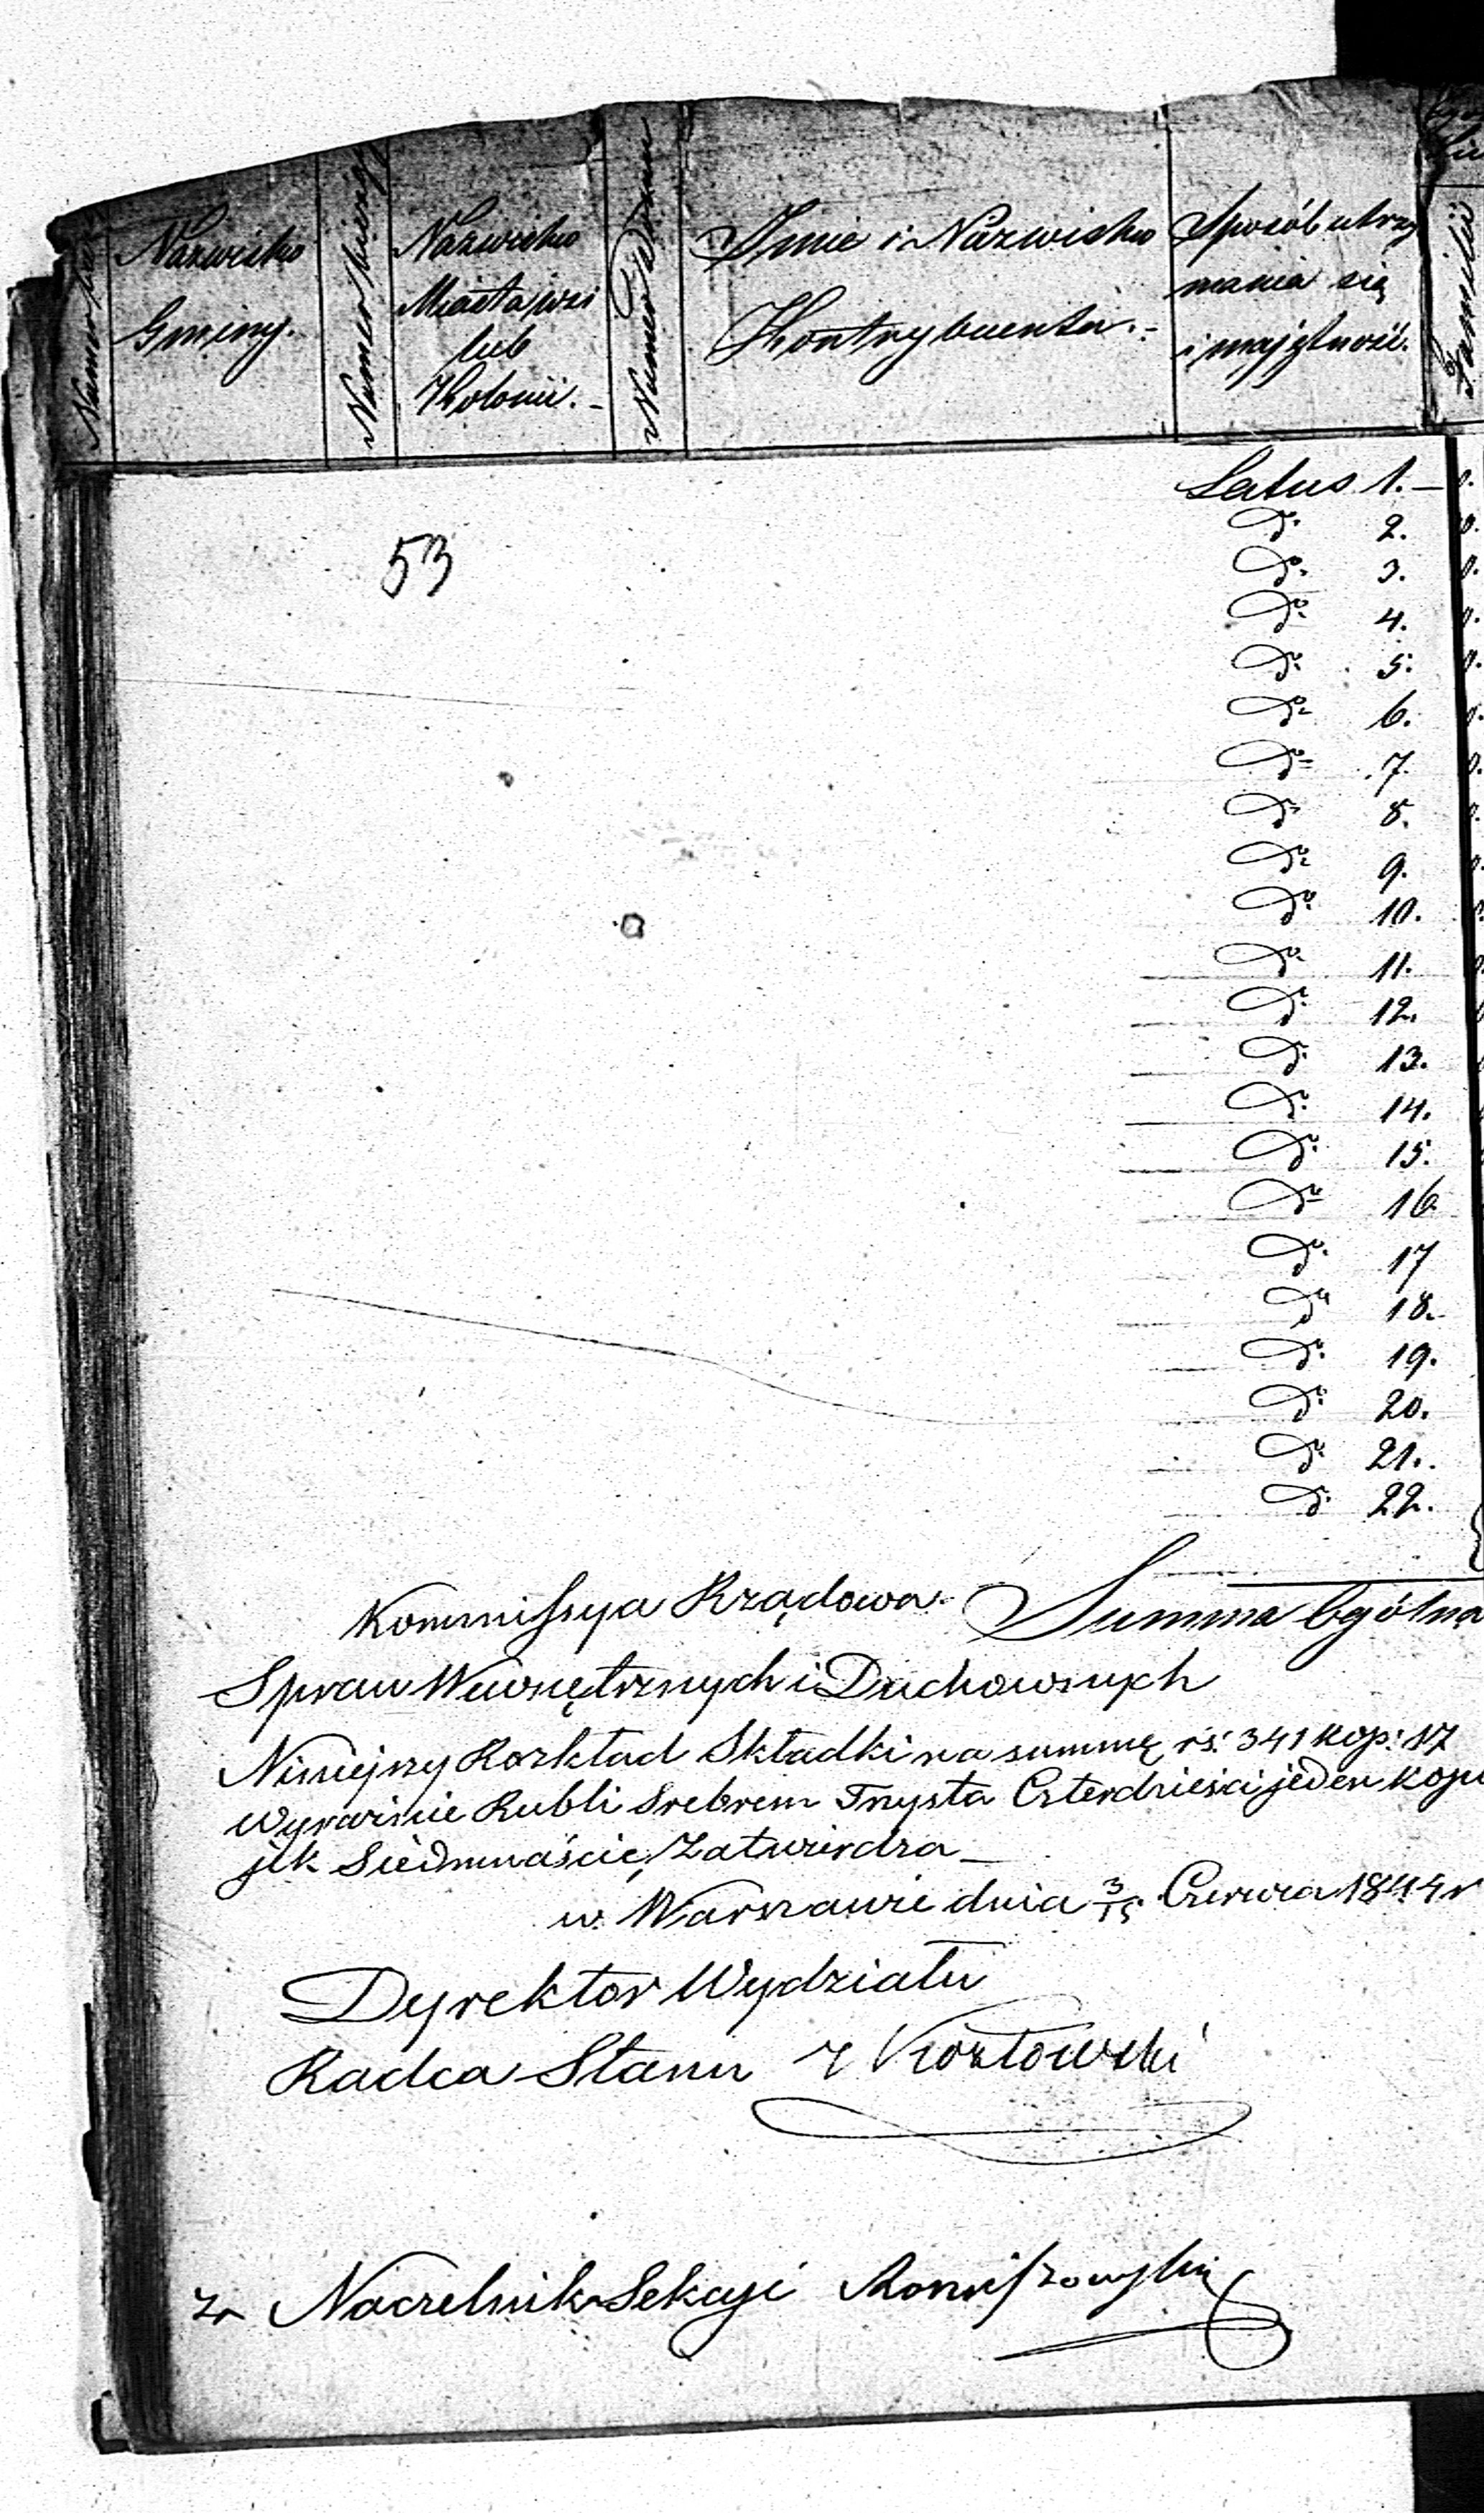 Nazwisko
Gminy.
Numer bieżący
Nazwisko
Miasta wsi
lub
Kolonii.-
Numer Domu
Imie i Nazwisko
Kontrybuenta.-
Sposób utrzy
mania się
i majętność.
Familii
Latus 1.-
do 2.
do 3.
do 4.
do 5.
do 6.
do 7.
do 8.
do 9.
do 10.
do 11.
do 12.
do 13.
do 14.
do 15.
do 16
do 17
do 18.
do 19.
do 20.
do 21.
do 22.
53
Summa Ogólna
Kommissya Rządowa
Spraw Wewnętrznych i Duchownych
Niniejszy Rozkład Składki na summę rs: 341 kop: 17
wyraźnie Rubli Srebrem Trzysta Czterdzieści jeden kopi
jek Siedmnaście, Zatwierdza_
w Warszawie dnia 3/15 Czerwca 1844 r
Dyrektor Wydziału
Radca Stanu Kozłowski
za Naczelnik Sekcyi